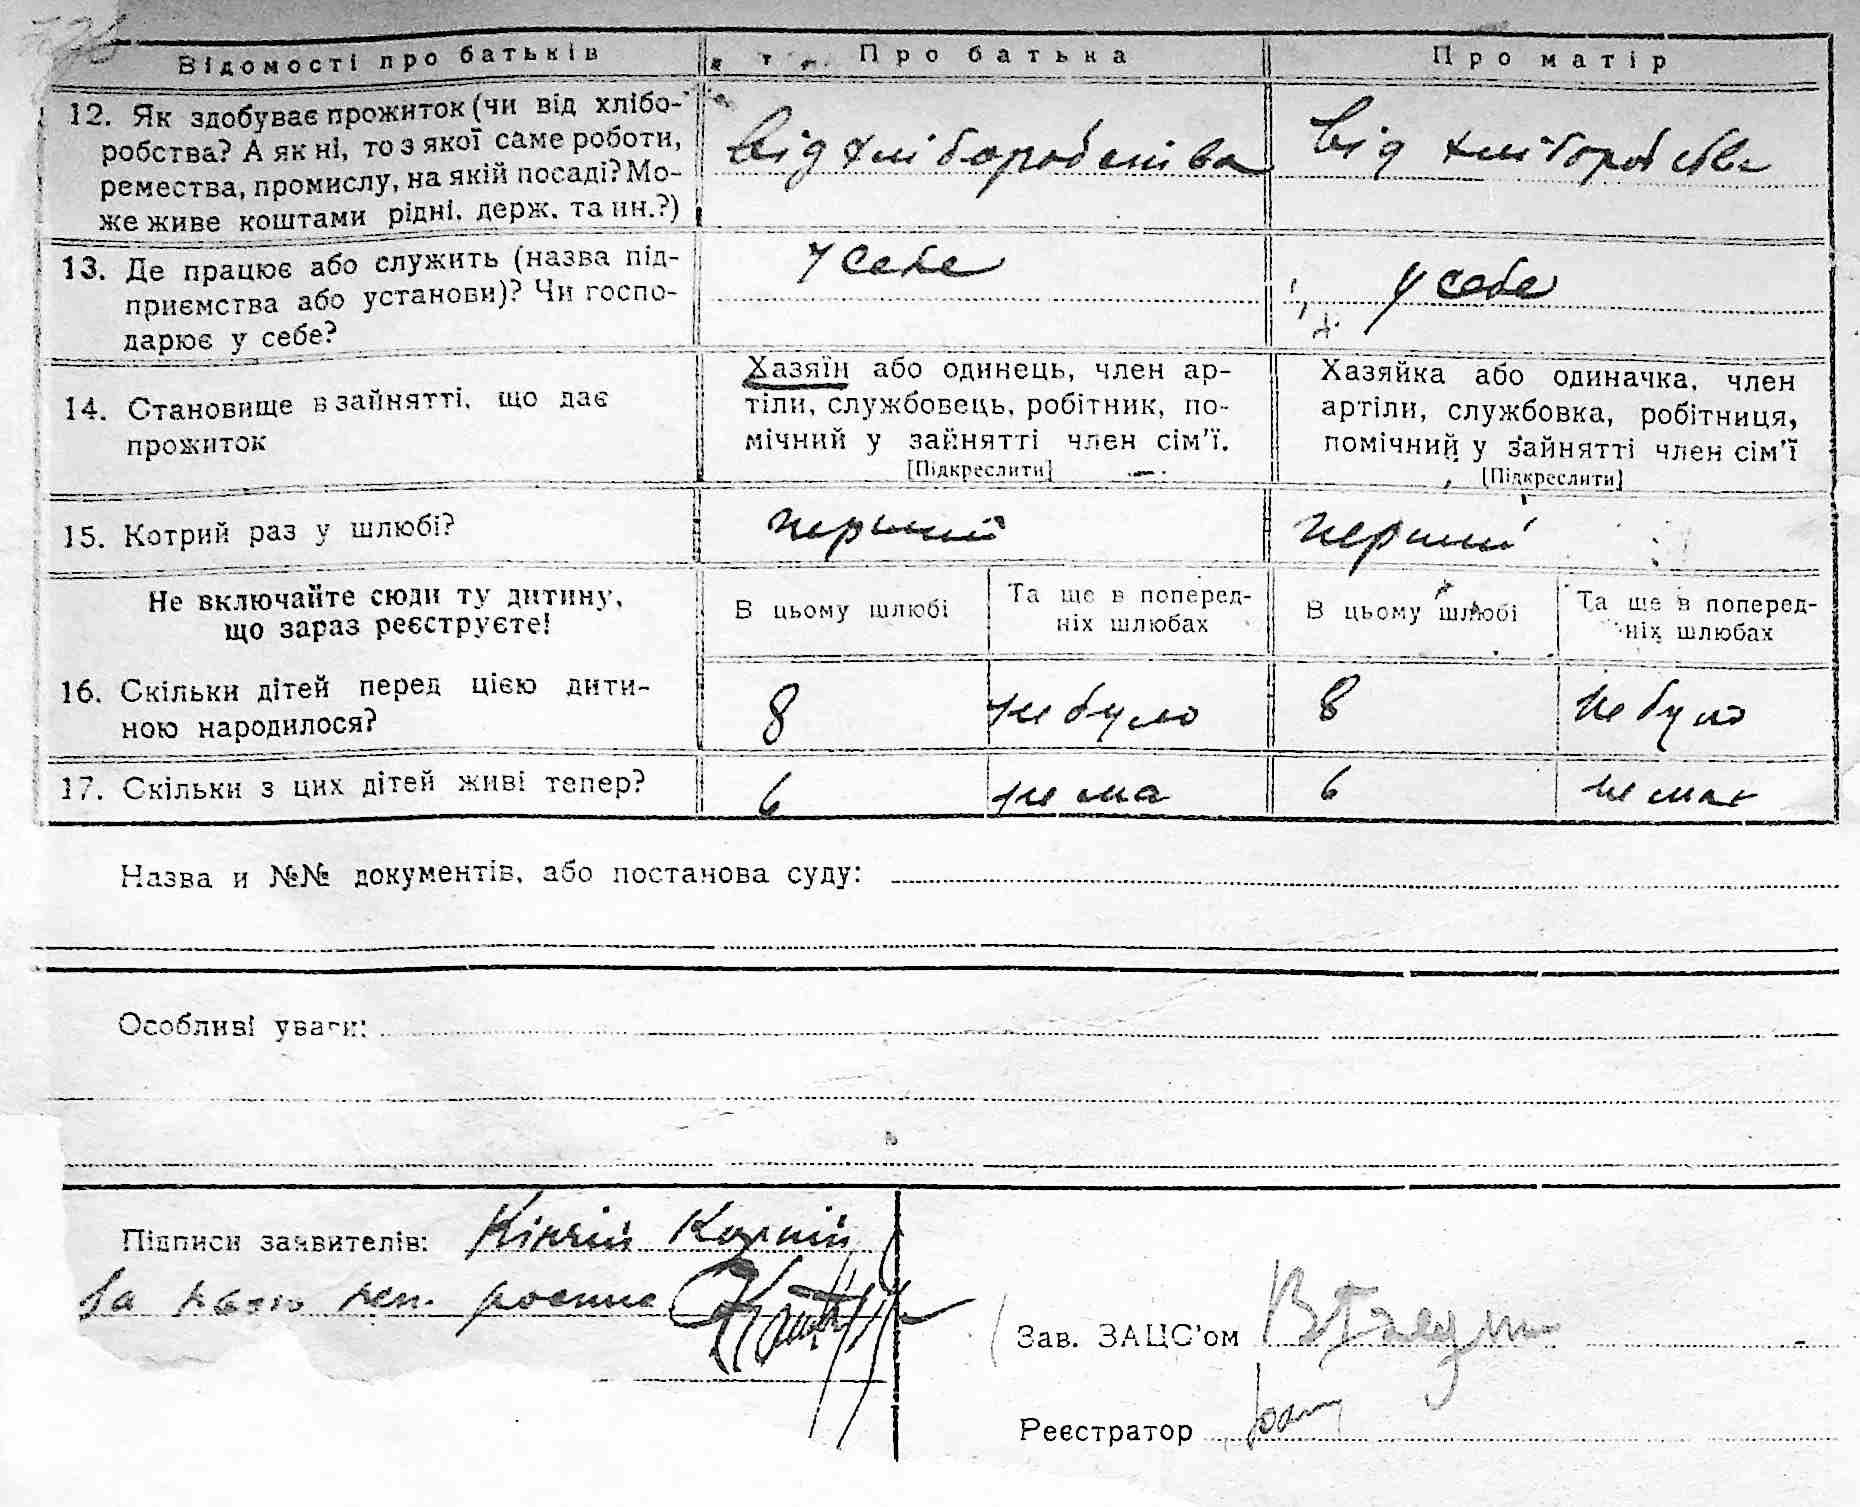 Відомості про батьків Про батька Про матір
12. Як здобуває прожиток (чи від хлібо-
робства? А як ні, то з якої саме роботи,
ремества, промислу, на якій посаді? Мо-
же живе коштами рідні, держ. та ин.?)
Від хліборобства Від хліборобства
13. Де працює або служить (назва під-
приємства або установи)? Чи госпо-
дарює у себе?
у себе у себе
14. Становище в зайнятті, що дає
прожиток
Хазяїн або одинець, член ар-
тіли, службовець, робітник, по-
мічний у зайнятті член сім'ї.
[Підкреслити]
Хазяйка або одиначка, член
артіли, службовка, робітниця,
помічний у зайнятті член сім'ї
[Підкреслити]
15. Котрий раз у шлюбі? перший перший
Не включайте сюди ту дитину,
що зараз реєструєте!
В цьому шлюбі
Та ще в поперед-
ніх шлюбах
В цьому шлюбі
Та ще в поперед-
ніх шлюбах
16. Скільки дітей перед цією дити-
ною народилося?
8 не було 8 не було
17. Скільки з цих дітей живі тепер? 6 нема 6 немає
Назва и №№ документів, або постанова суду:
Особливі уваги:
Підписи заявителів: Кінчій Корній
За
Зав. ЗАЦС'ом
Реєстратор